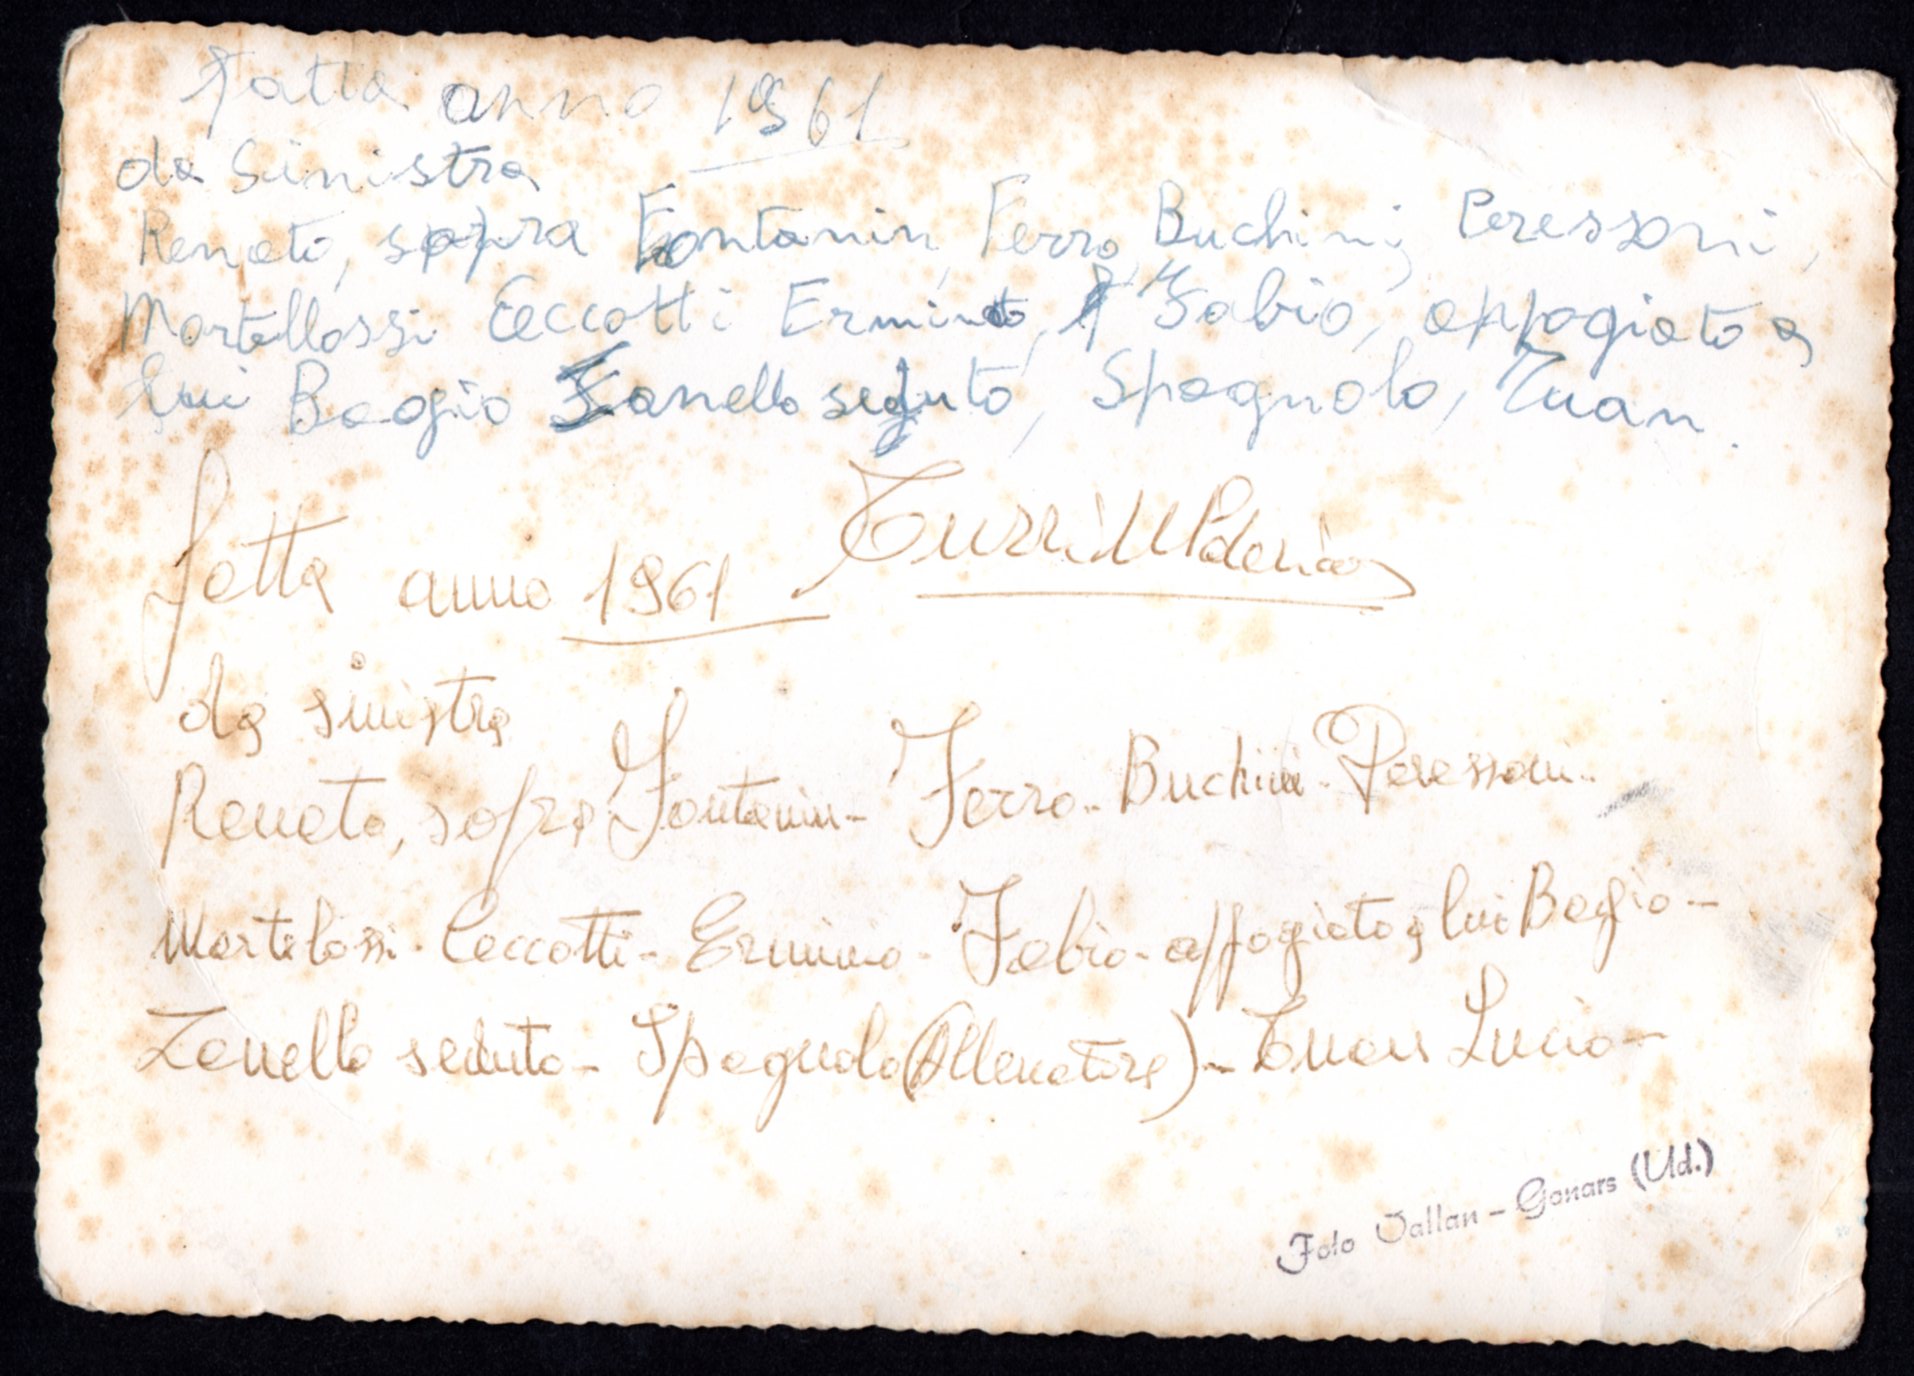 Fatta anno 1961
da Sinistra
Renato, sopra Fontanin, Ferro, Buchini, Peressoni,
Martellossi Ceccotti Erminio, Fabio, appogiato a
lui Baogio Zanello seduto, Spagnolo, Tuan.
fatta anno 1961
da sinistra
Renato, sopra Fontanin - Ferro - Buchini - Peressoni -
Martelossi - Ceccotti - Erminio - Fabio - appogiato a lui Bagio -
Zanello seduto - Spagnolo (Allenatore) - Tuan Lucio -
Foto Vallan - Gonars (Ud.)